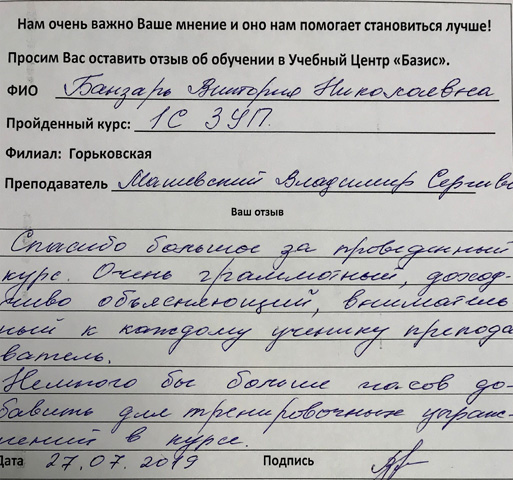 Нам очень важно Ваше мнение и оно нам помогает становиться лучше!
Просим Вас оставить отзыв об обучении в Учебный Центр «Базис».
ФИО Банзарь Виктория Николаевна
Пройденный курс: 1С ЗУП.
Филиал: Горьковская
Преподаватель Машевский Владимир Сергиево
Ваш отзыв
Спасибо большое за проведенный
курс. Очень граммотный, доход-
чиво объясняющий, вниматель
ный к каждому ученику препода
ватель.
Немного бы больше часов до-
бавить для тренировочных упраж-
нений в курсе.
Дата 27.07.2019 Подпись